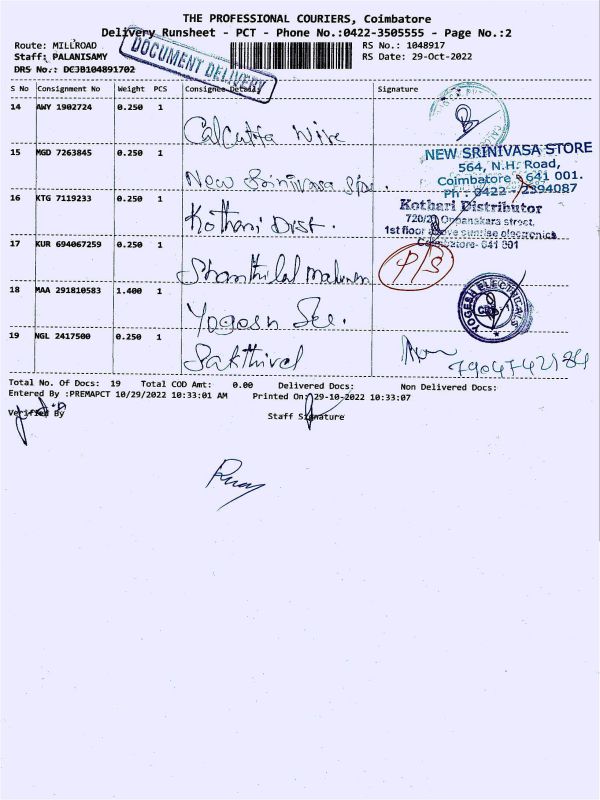 THE PROFESSIONAL COURIERS, Coimbatore
Delivery Runsheet - PCT - Phone No.:0422-3505555 - Page No.:2
Route: MILLROAD RS No.: 1048917
Staff: PALANISAMY RS Date: 29-Oct-2022
DRS No.: DCJB104891702
DOCUMENT DELIVERY
S No Consignment No Weight PCS Consignee Details Signature
14 AWY 1902724 0.250 1
Calcutta Wire
15 MGD 7263845 0.250 1
New Srinivasa Store.
NEW SRINIVASA STORE
564, N.H. Road,
Coimbatore - 641 001.
Ph : 0422 - 2394087
16 KTG 7119233 0.250 1
Kothari Dist.
Kothari Distributor
720/21 Oppanakara street,
1st floor Above sunrise electronics
Coimbatore- 641 001
17 KUR 694067259 0.250 1
Shanthilal
P/S
18 MAA 291810583 1.400 1
Yogesh Ele.
YOGESH ELECTRICALS
CBE
19 NGL 2417500 0.250 1
Sakthivel
7904742184
Total No. Of Docs: 19 Total COD Amt: 0.00 Delivered Docs: Non Delivered Docs:
Entered By :PREMAPCT 10/29/2022 10:33:01 AM Printed On: 29-10-2022 10:33:07
Verified By Staff Signature